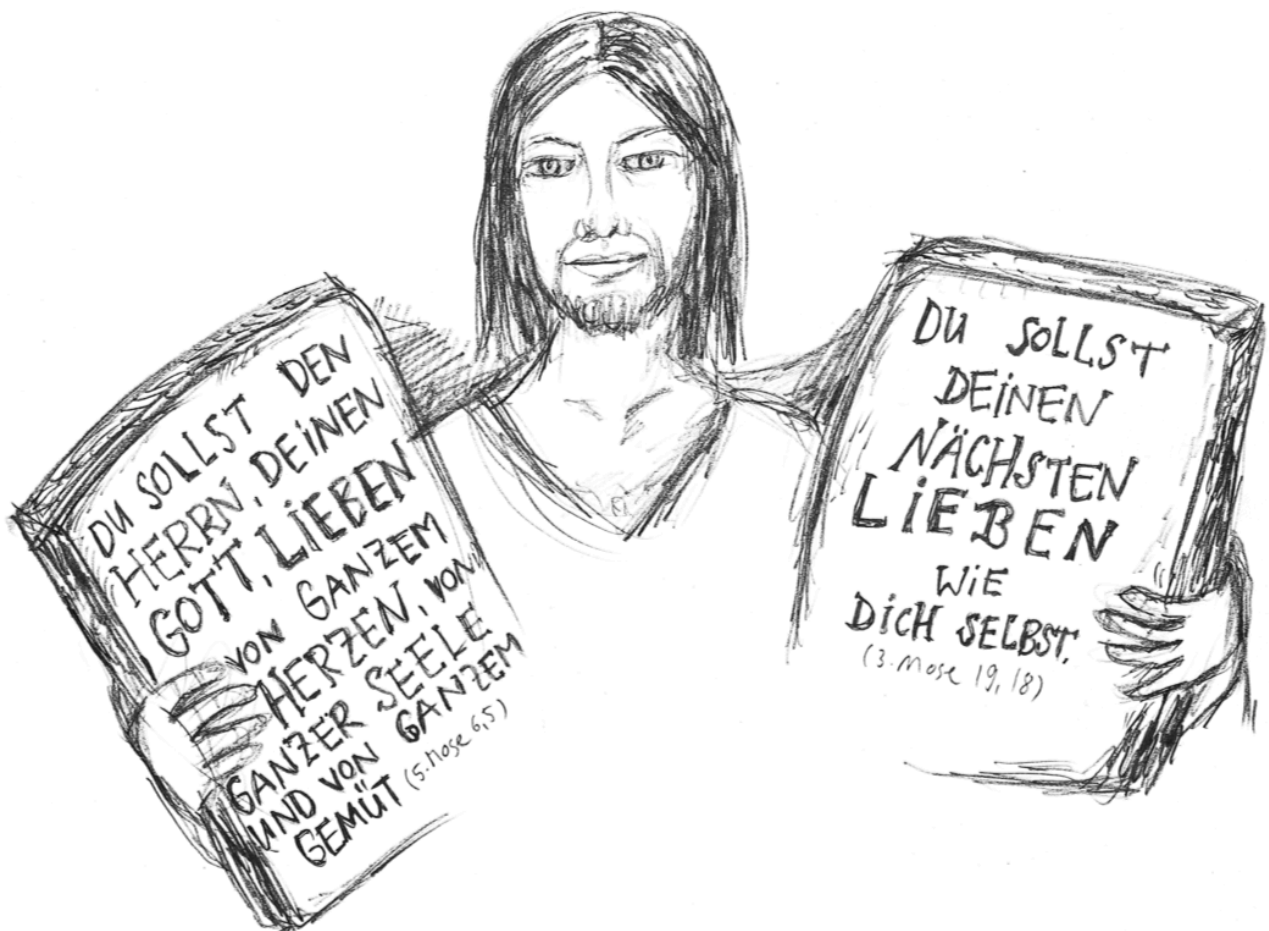 DU SOLLST DEN
HERRN, DEINEN
GOTT, LIEBEN
VON GANZEM
HERZEN, VON
GANZER SEELE
UND VON GANZEM
GEMÜT (5. Mose 6,5)
DU SOLLST
DEINEN
NÄCHSTEN
LIEBEN
WIE
DICH SELBST.
(3. Mose 19, 18)